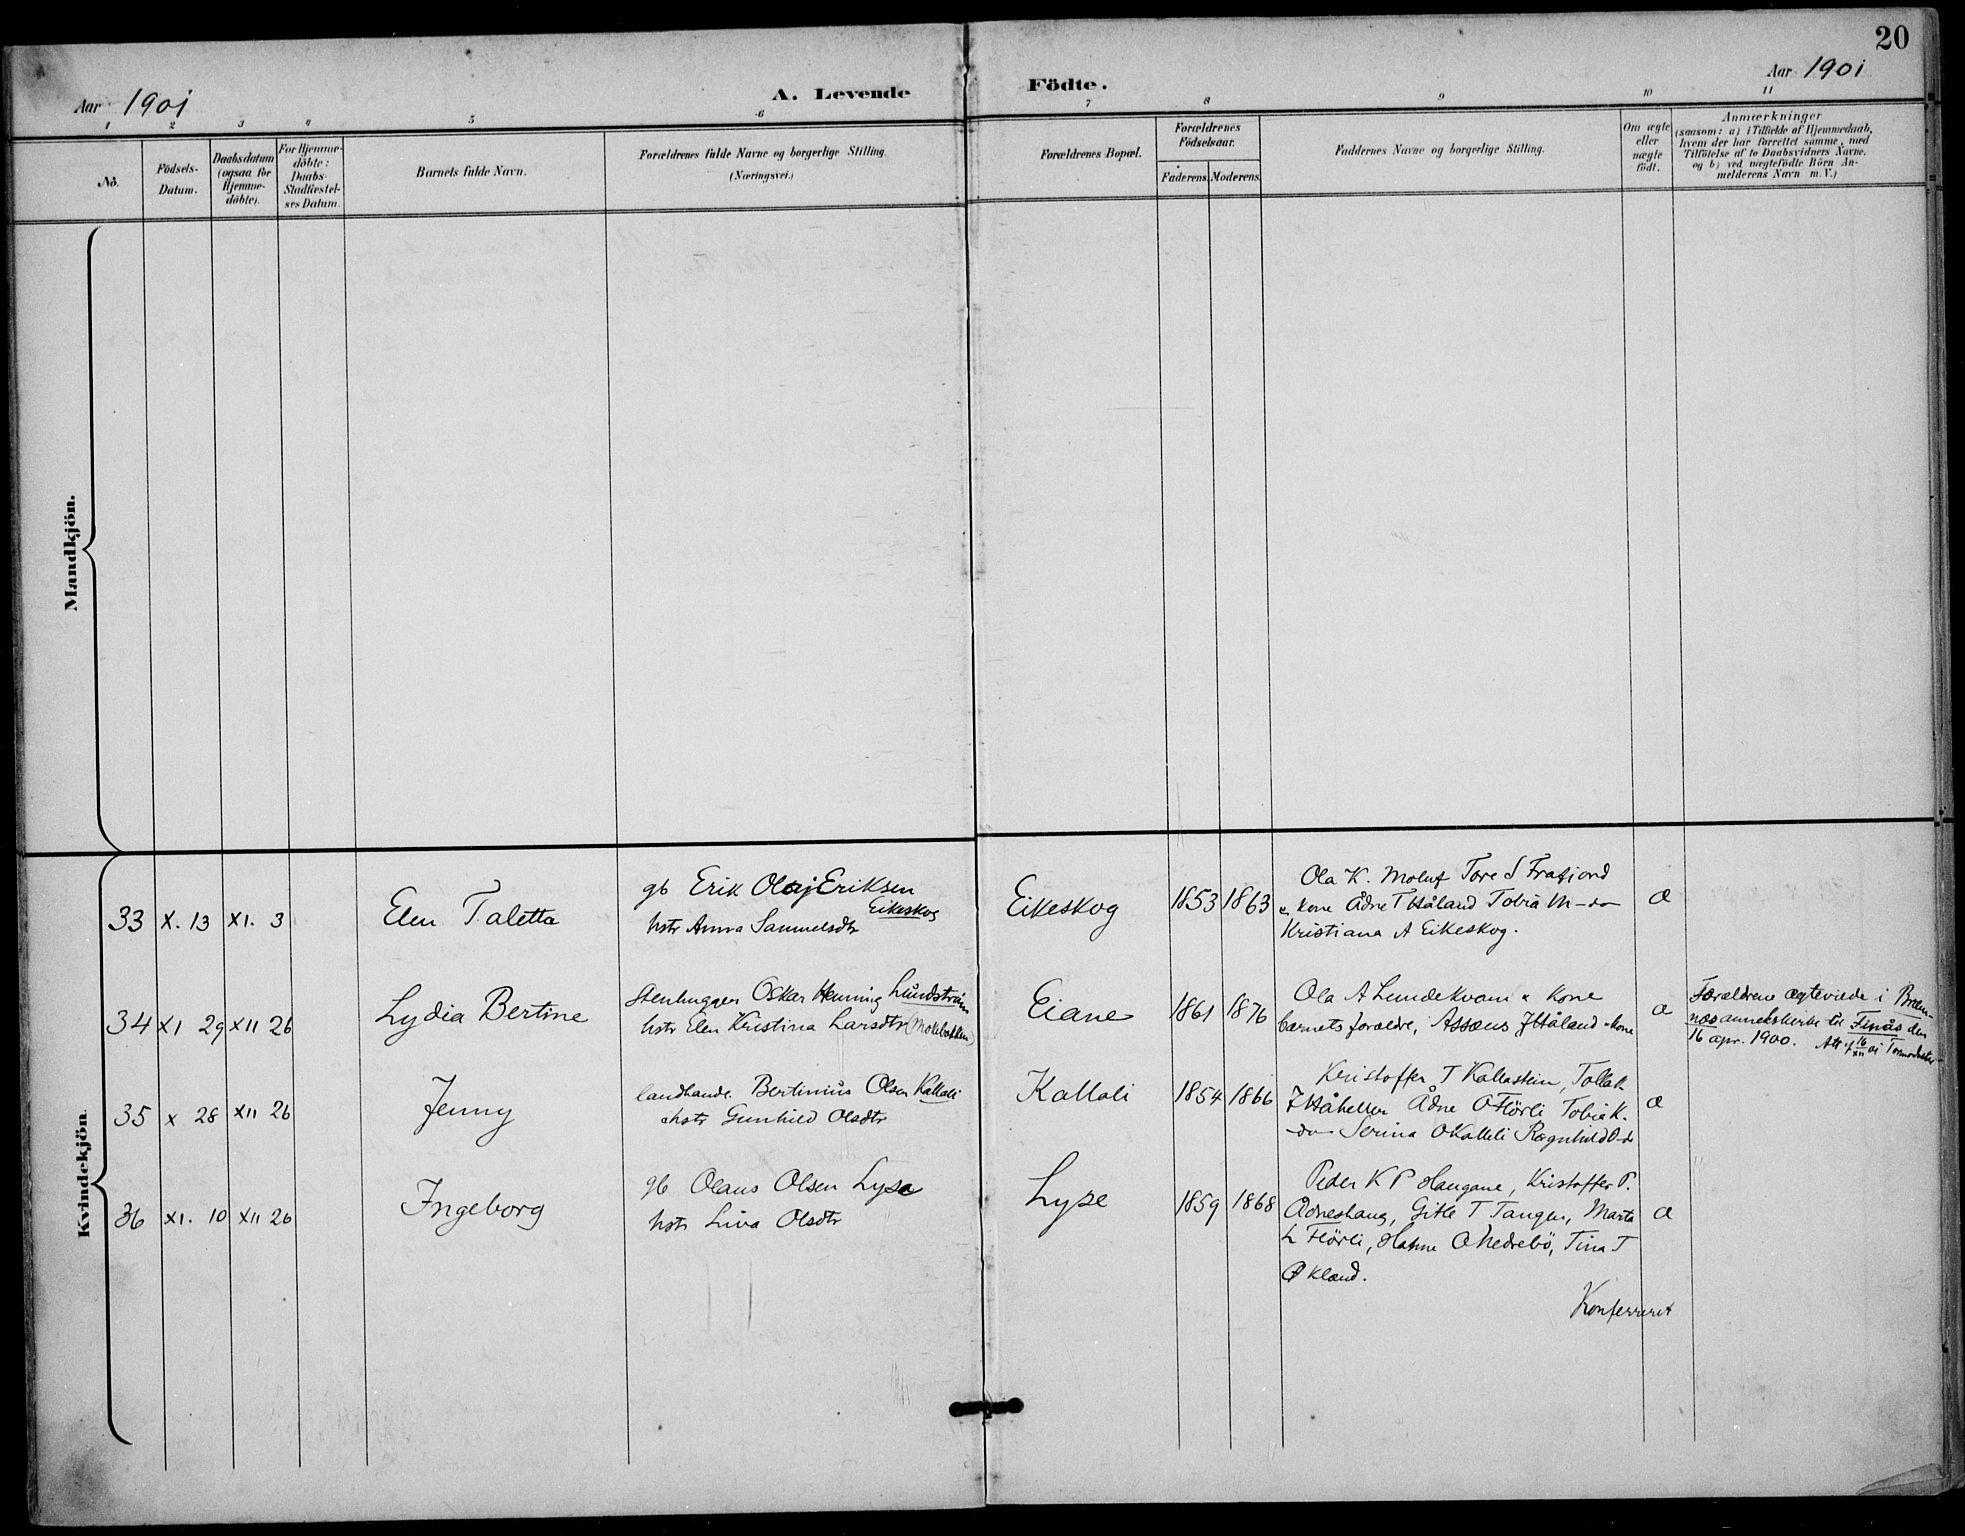 20
Aar 1901
A. Levende
Födte.
Aar 1901
1 2 3 4 5 6 7 8 9 10 11
No.
Födsels-Datum.
Daabsdatum (ogsaa for Hjemme-döbte).
For Hjemme-döbte: Daabs-Stadfæstel-ses Datum.
Barnets fulde Navn.
Forældrenes fulde Navne og borgerlige Stilling.
(Næringsvei.)
Forældrenes Bopæl.
Forældrenes Födselsaar.
Faderens. Moderens.
Faddernes Navne og borgerlige Stilling.
Om ægte eller uægte födt.
Anmærkninger
(saasom: a) i Tilfælde af Hjemmedaab,
hvem der har forrettet samme, med
Tilföielse af to Daabsvidners Navne.
og b) ved uægtefödte Börn An-
melderens Navn m. V.)
Mandkjön.
Kvindekjön.
33 X. 13 XI. 3 Elen Taletta
gb Erik Olaj Eriksen
Eikeskog
hstr Anna Samuelsdtr
Eikeskog 1853 1863
Ola K. Moluf Tore S Frafjord
& kone Ådne T Håland Tobia M - do
Kristiana A Eikeskog.
æ
34 XI 29 XII 26 Lydia Bertine
Stenhugger Oskar Henning Lundström
hstr Elen Kristina Larsdtr (Molebakken)
Eiane 1861 1876
Ola A Lundekvam & kone
barnets forældre, Assæus J Håland & kone
æ
Forældrene ægteviede i Brem-
næs annekskirke til Finås den
16 apr. 1900. Att. f 16/XII
35 X 28 XII 26 Jenny
landhandl. Bertinius Olsen Kallali
hstr Gunhild Olsdtr
Kallali 1854 1866
Kristoffer T Kallastein, Tollak
J Håheller Ådne O Flörli Tobia K.
- do - Serina O Kallali Ragnhild O - do
æ
36 XI. 10 XII 26 Ingeborg
gb Olaus Olsen Lyse
hstr Liva Olsdtr
Lyse 1859 1868
Peder K P Haugane, Kristoffer P.
Ådneshaug, Gitle T Tangen, Marta
L Flörli, Hanne O Nedrebö, Tina T
Økland.
æ
Konferreret